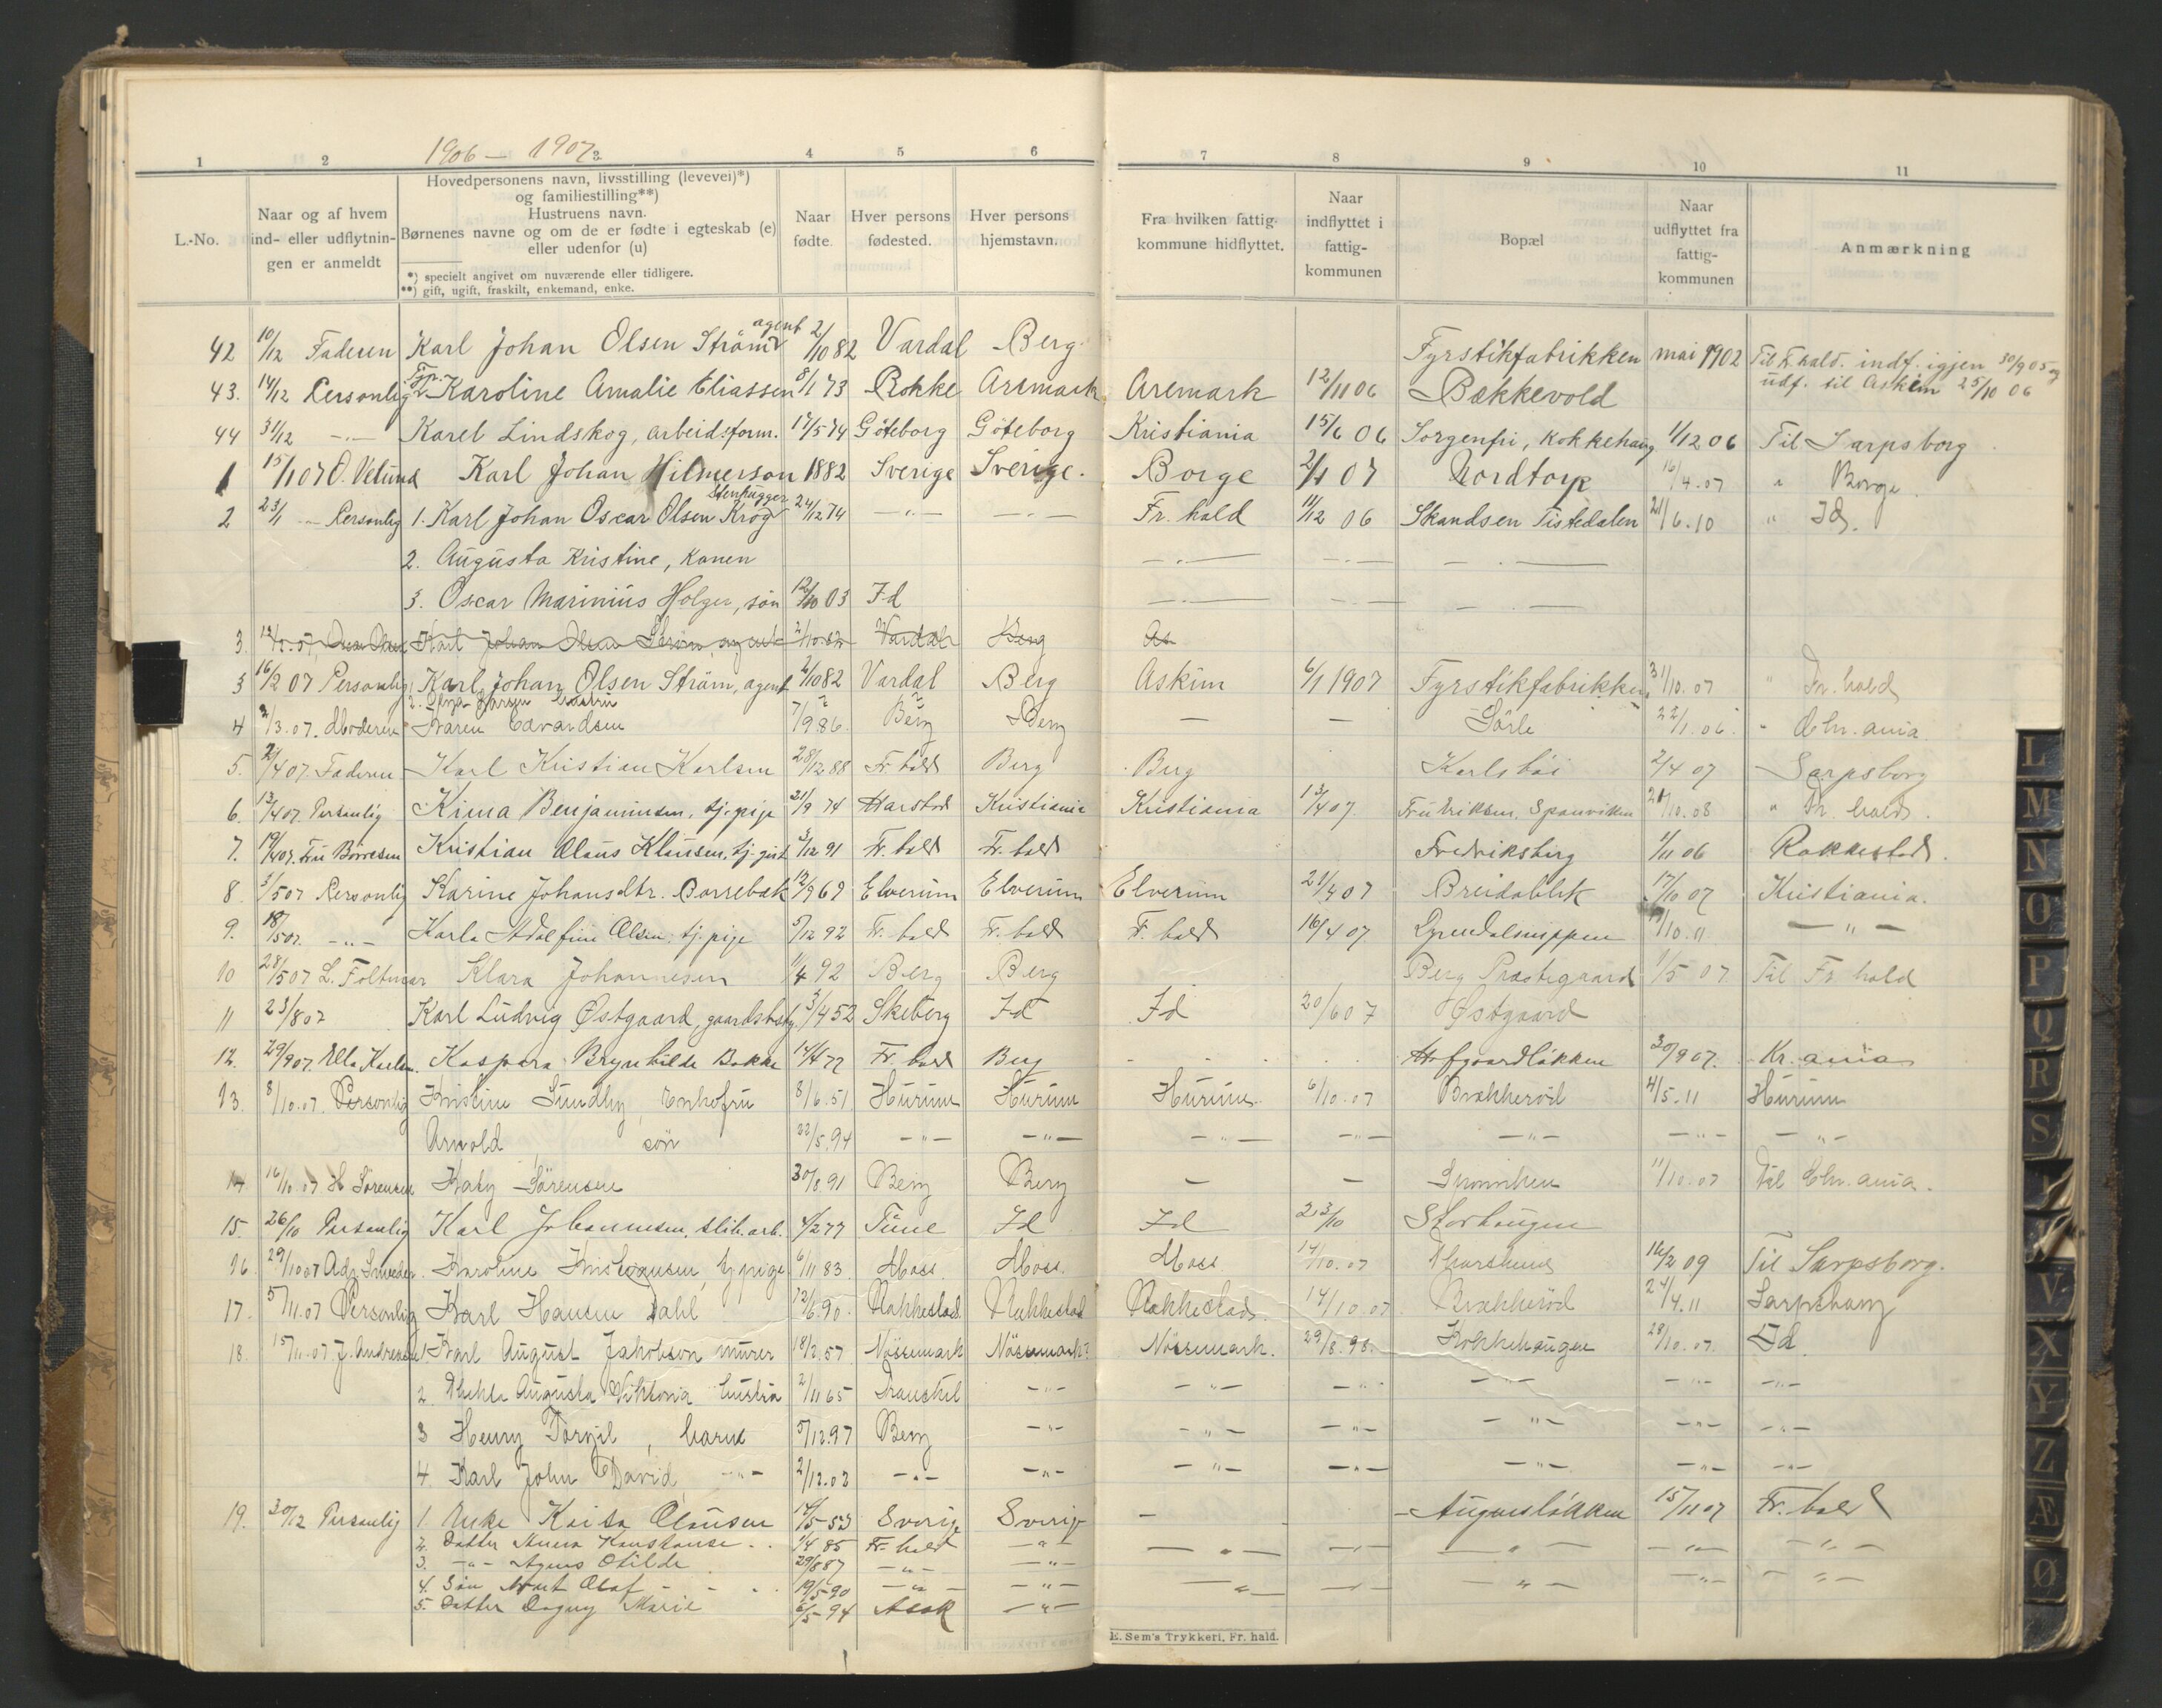 1906 — 1907
1 2 3 4 5 6 7 8 9 10 11
L.-No.
Naar og af hvem ind- eller udflytnin- gen er anmeldt
Hovedpersonens navn, livsstilling (levevei)*)
og familiestilling**)
Hustruens navn.
Børnenes navne og om de er fødte i egteskab (e)
eller udenfor (u)
*) specielt angivet om nuværende eller tidligere.
**) gift, ugift, fraskilt, enkemand, enke.
Naar fødte.
Hver persons fødested.
Hver persons hjemstavn.
Fra hvilken fattig- kommune hidflyttet.
Naar indflyttet i fattig- kommunen
Bopæl
Naar udflyttet fra fattig- kommunen
Anmærkning
42 10/12 Faderen Karl Johan Olsen Ström agent 2/10 82 Vardal Berg Fyrstikfabrikken mai 1902 Til Fr.hald. indf. igjen 30/9 05 og
udf. til Askim 25/10 06
43. 14/12 Personlig Karoline Amalie Eliassen 8/1 73 Rokke Aremark Aremark 12/11 06 Bækkevold
44 31/12 —„— Karel Lindskog, arbeidsform. 17/5 74 Göteborg Göteborg Kristiania 15/6 06 Sorgenfri, Kokkehaug 1/12 06 Til Sarpsborg
1 15/1 07 O. Velund Karl Johan Hilmerson 1882 Sverige Sverige. Borge 2/1 07 Nordtorp 16/4.07 „ Borge.
2 23/1 — Personlig 1. Karl Johan Oscar Olsen Krog Stenhugger 24/12 74 —„— —„— Fr. hald 11/12 06 Skandsen Tistedalen 21/6.10 „ Id.
2. Augusta Kristine, Konen —„— —„— —„—
3. Oscar Marinius Holger, søn 12/10 03 Id —„— —„— —„—
3. Karl Johan Olsen Strøm, agent 2/10.82 Vardal Berg As
3 16/2 07 Personlig 1. Karl Johan Olsen Ström, agent 2/10 82 Vardal Berg Askim 6/1 1907 Fyrstikfabrikken 31/10.07 „ Fr. hald
4 2/3.07. Moderen Karen Edvardsen 7/9 86. Berg Berg — — Sörle 22/1.06. „ Chr.ania.
5. 2/4 07. Faderen Karl Kristian Karlsen 28/12 88 Fr. hald Berg Berg Karlsböi 2/4 07 Sarpsborg
6. 13/4 07. Personlig Kima Benjaminsen, tj. pige 21/9 74 Harstad Kristiania Kristiania 13/4 07. Fru Eriksen, Sponviken 28/10.08 „ Fr. hald.
7. 19/4 07. Fru Börresen Kristian Olaus Klausen, tj. gut 3/12 91 Fr. hald Fr. hald Fredriksberg 1/11 06 Rakkestad.
8. 3/5 07 Personlig Karine Johansdtr. Borrebæk 12/9 69 Elverum Elverum Elverum 21/4 07 Breidablik 17/10 07 Kristiania.
9. 18/5 07. —„— Karla Adolfine Olsen, tj. pige 5/12 92 Fr. hald Fr. hald Fr. hald 16/4 07 11/10.11 —„—
10 28/5 07 L. Foltmar Klara Johannesen 11/4 92 Berg Berg Berg Præstegaard 1/5 07. Til Fr hald
11 23/8 07 Karl Ludvig Østgaard, gaardsbest. 3/4 52 Skeberg Id Id 20/6 07 Østgaard
12. 29/9 07. Ella Karlsen. Kaspara Brynhilde Bakke 14/4 77 Fr. hald Berg Hofgaardløkken 30/9 07. Kr.ania
13. 8/10.07. Personlig Kristine Sundby Enkefru 8/6.51 Hurum Hurum Hurum. 6/10.07 Brækkeröd 4/5.11 Hurum
Arnold søn 22/5.94 —„— —„— —„— —„— —„— —„— —„—
14 16/10.07 H Sörensen Katy Sörensen 30/8.91 Berg Berg — — Sponviken 11/10.07 Til Chr.ania.
15. 26/10 Personlig Karl Johannesen, slib. arb. 4/2 77 Tune Id Id 23/10 Storhaugen
16. 29/10 07 Karoline Kristiansen, tj.pige 6/11 83. Moss. Moss. Moss 14/10.07 16/2 09 Til Sarpsborg.
17. 5/11.07 Personlig Karl Hansen Dahl 12/6.90. Rakkestad Rakkestad Rakkestad. 14/10.07 Brækkeröd 24/4.11 Sarpsborg
18. 15/11.07. J. Andresen 1 Karl August Jakobson murer 18/2.57 Nössemark Nössemark? Nössemark. 29/8.98. Kokkehaugen 28/10.07. Id.
2. Thekla Augusta Viktoria hustru 2/11 65 —„— —„— —„— —„— —„— —„—
3 Henry Torgil, barn 5/12.97 Berg —„— —„— —„— —„— —„— —„—
4. Karl John David, —„— 2/12.02 —„— —„— —„— —„— —„— —„— —„—
19. 30/12 Personlig 1. Anke Kaisa Olausen 14/5-53 Sverige Sverige — Augustløkken 15/11 07 Fr. hald
2. Datter Anna Konstanse 1/4 85 Fr. hald —„— —„— —„— —„— —„— —„—
3. —„— Agnes Otilde 29/8 87 —„— —„—
4. Søn Olaf 19/5-90 —„— —„— —„— —„— —„— —„— —„—
5. Datter Dagny Marie 6/5-94 Asak —„—
E. Sem's Trykkeri, Fr. hald.
L
M
N
O
P
Q
R
S
V
X
Y
Z
Æ
Ø